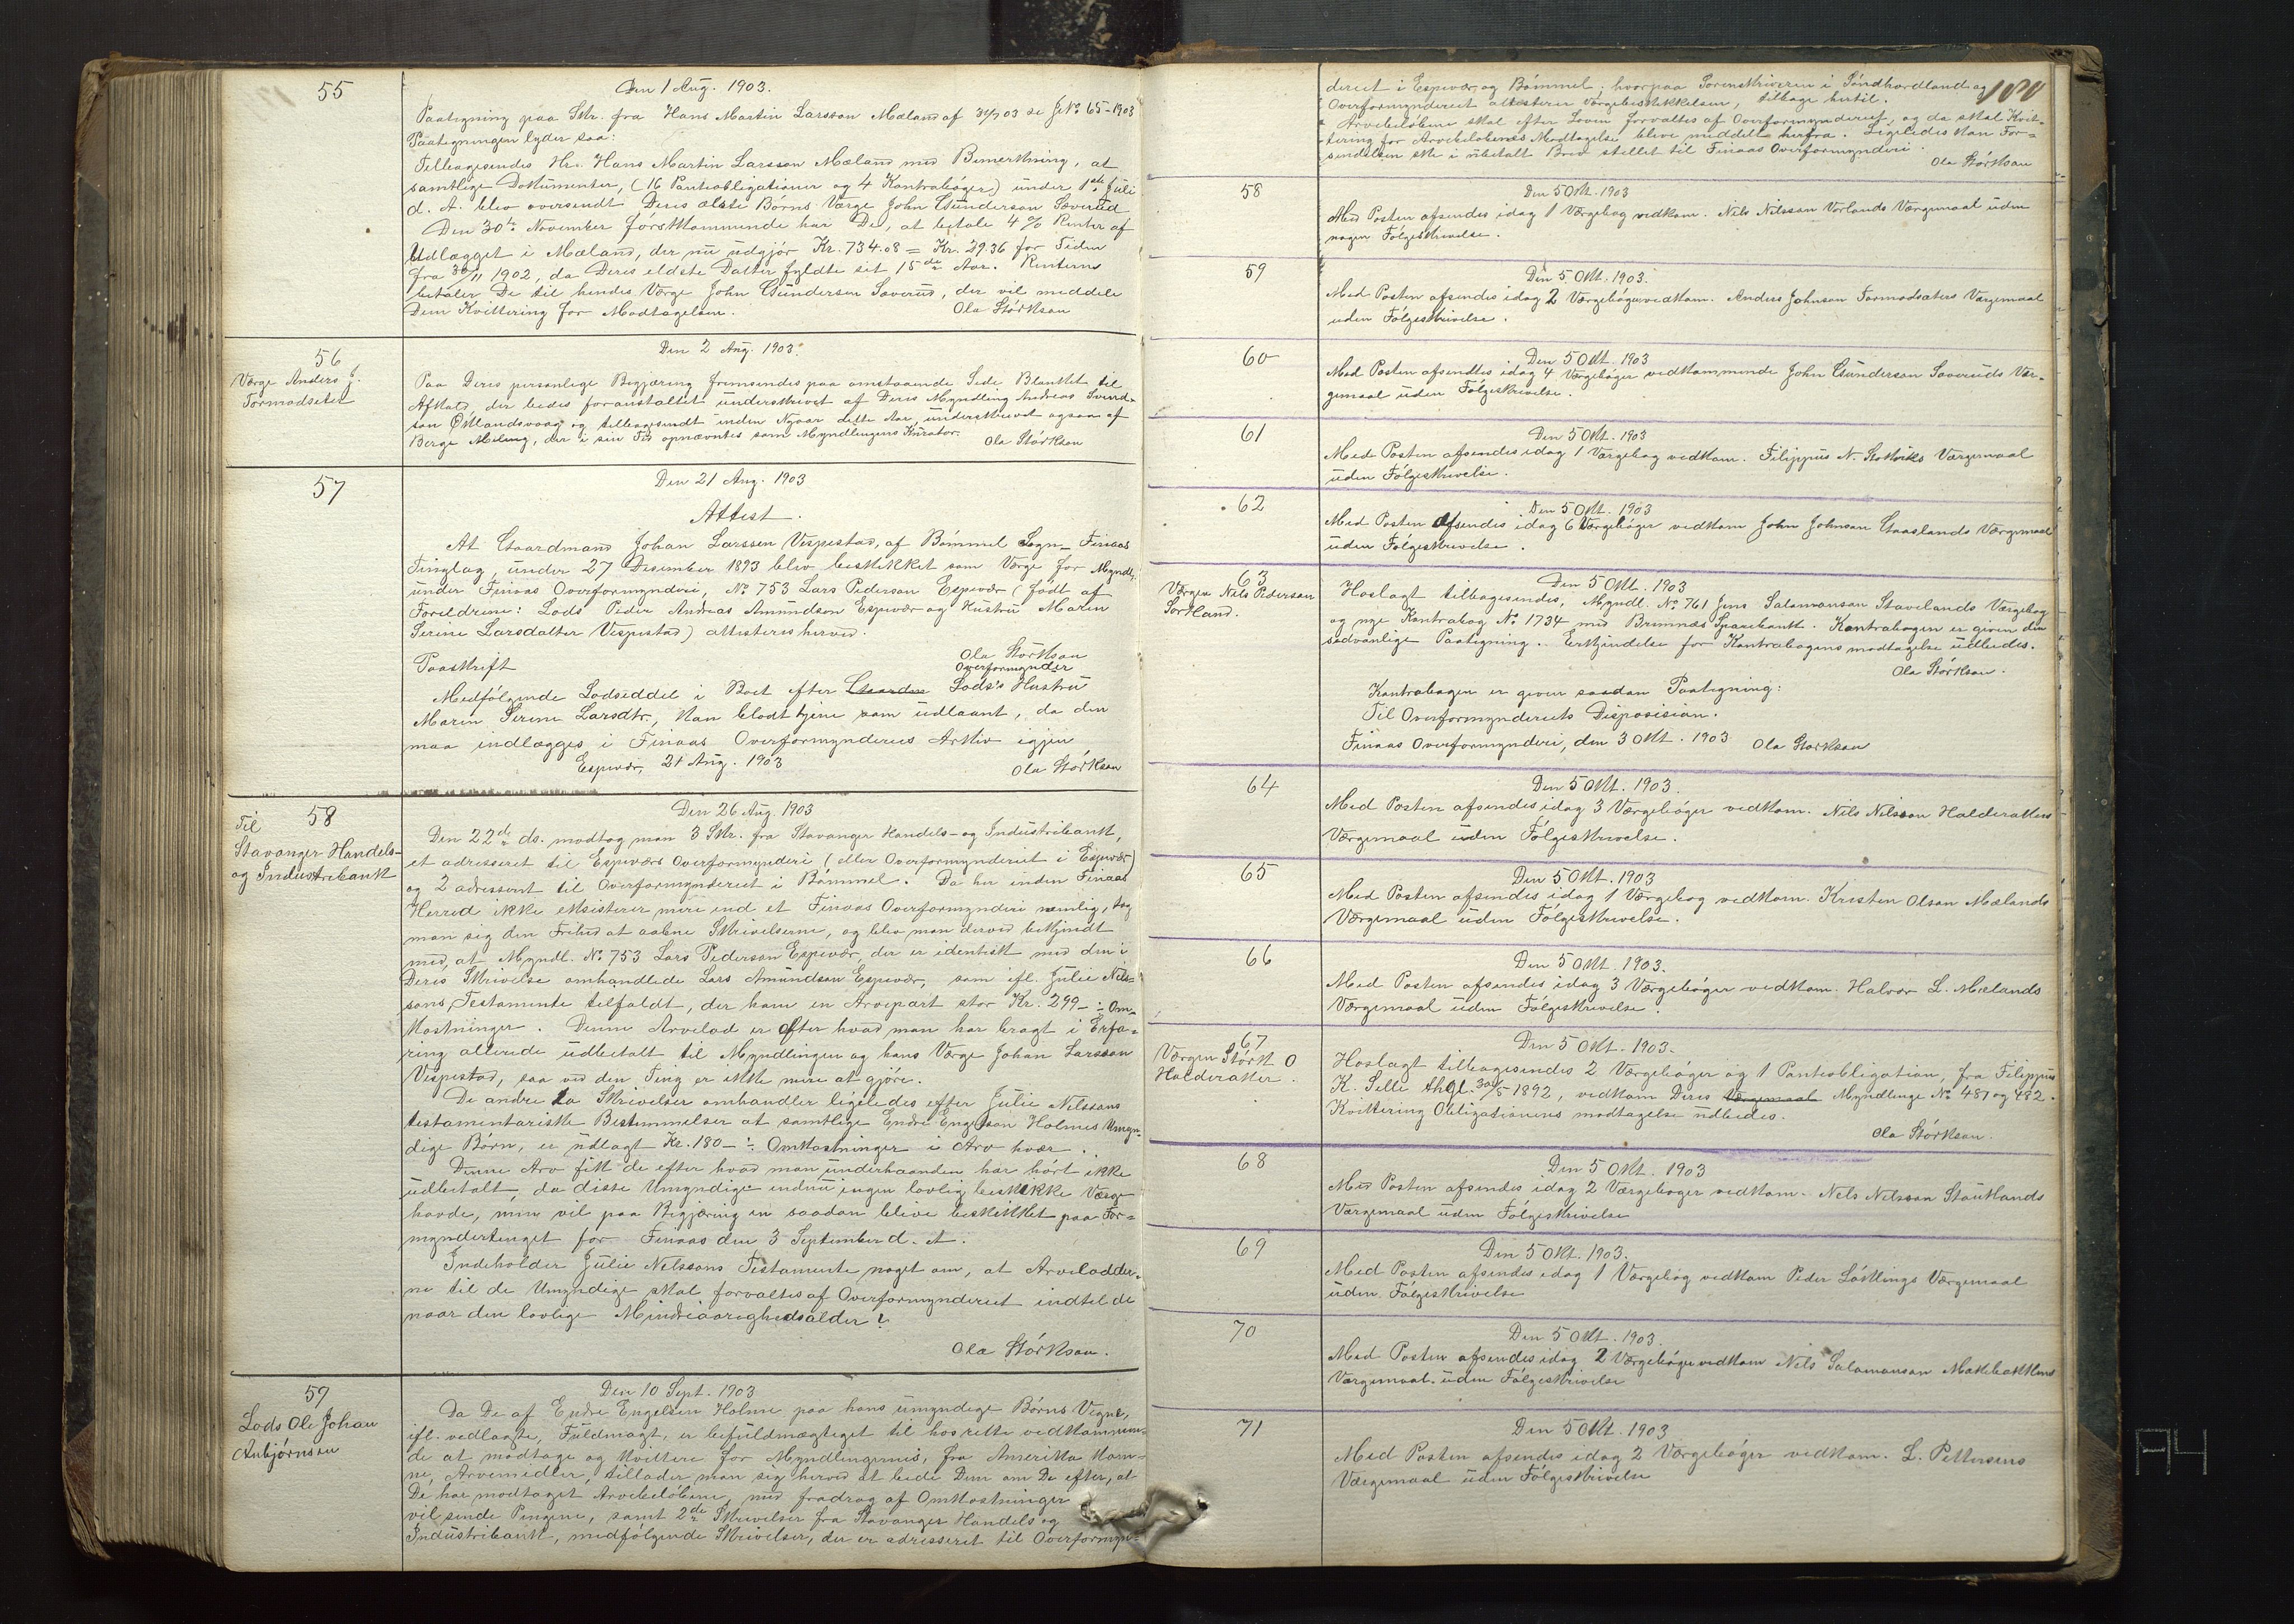 55
Den 1 Aug. 1903.
Paategning paa Skr. fra Hans Martin Larsson Mæland af 31/7 03 se J. No 65-1903
Paategningen lyder saa:
Tilbagesendes Hr. Hans Martin Larsson Mæland med Bemerkning, at
samtlige Dokumenter, (16 Panteobligationer og 4 Kontrabøger) under 1ste Juli
d. A. blev oversendt Deres ælste Børns Værge John Gunderson Søverud
Den 30te November førstkommende har De, at betale 4 % Renter af
Udlægget i Mæland, der nu udgjør Kr. 734.08 = Kr. 29.36 for Tiden
fra 30/11 1902, da Deres eldste Datter fyldte sit 15de Aar. Renterne
betaler De til hendes Værge John Gunderson Søverud, der vil meddele
Dem Kvittering for Modtagelsen.
Ola Størkson
56
Værge Anders J.
Tormodseter
Den 2 Aug. 1903.
Paa Deres personlige Begjæring fremsendes paa omstaaende Side Blanket til
Afkald, der bedes foranstaltet underskrevet af Deres Myndling Andreas Svend-
son Øklandsvaag og tilbagesendt inden Nyaar dette Aar, underskrevet ogsaa af
Berge Meling, der i sin Tid opnævntes som Myndlingens Kurator.
Ola Størkson
57
Den 21 Aug. 1903
Attest.
At Gaardmand Johan Larsson Vespestad, af Bømmel Sogn - Finaas
Tinglag, under 27 Desember 1893 blev beskikket som Værge for Myndl.
under Finaas Overformynderi, No 753 Lars Pederson Espevær (født af
Foreldrene: Lods Peder Andreas Amundson Espevær og Hustru Maren
Serine Larsdatter Vespestad) attesteres herved.
Ola Størkson
Overformynder
Paaskrift
Medfølgende Lodseddel i Boet efter Gaardm Lods's Hustru
Maren Serine Larsdtr., kan blodt tjene som udlaant, da den
maa indlægges i Finaas Overformynderies Arkiv igjen
Espevær, 21 Aug. 1903
Ola Størkson
58
Til
Stavanger Handels-
og Industribank
Den 26 Aug. 1903
Den 22de ds. modtog man 3 Skr. fra Stavanger Handels- og Industribank,
et adresseret til Espevær Overformynderi (eller Overformynderiet i Espevær)
og 2 adresseret til Overformynderiet i Bømmel. Da her inden Finaas
Herred ikke eksisterer mere end et Finaas Overformynderi nemlig, tog
man sig den Frihed at aabne Skrivelserne, og blev man derved bekjendt
med, at Myndl. No 753 Lars Pederson Espevær, der er identisk med den i
Deres Skrivelse omhandlede Lars Amundson Espevær, som ifl. Julie Nels-
sons Testamente tilfaldt, der ham en Arvepart stor Kr. 299 - ÷ Om-
kostninger. Denne Arvelod er efter hvad man har bragt i Erfa-
ring allerede udbetalt til Myndlingen og hans Værge Johan Larsson
Vespestad, saa ved den Ting er ikke mere at gjøre.
De andre to Skrivelser omhandler ligeledes efter Julie Nelssons
testamentariske Bestemmelser at samtlige Endre Engelson Holmes Umyn-
dige Børn, er udlagt Kr. 180 - ÷ Omkostninger i Arv hver.
Denne Arv fik de efter hvad man underhaanden har hørt ikke
udbetalt, da disse Umyndige endnu ingen lovlig beskikke Værge
havde, men vil paa Begjæring en saadan blive beskikket paa For-
myndertinget for Finaas den 3 September d. A.
Indeholder Julie Nelssons Testamente noget om, at Arvelodder-
ne til de Umyndige skal forvaltes af Overformynderiet indtil de
naar den lovlige Mindreaarighedsalder?
Ola Størkson.
59
Lods Ole Johan
Anbjørnsen
Den 10 Sept. 1903
Da De af Endre Engelsen Holme paa hans umyndige Børns Vegne,
ifl. vedlagte, Fuldmagt, er befuldmægtiget til hos rette vedkommen-
de at modtage og kvittere for Myndlingernes, fra Amerika kom-
ne, Arvemidler, tillader man sig herved at bede Dem om De efter, at
De har modtaget Arvebeløbene, med fradrag af Omkostninger
vil sende Pengene, samt 2de Skrivelser fra Stavanger Handels og
Industribank, medfølgende Skrivelser, der er adresseret til Overformyn-
181
deriet i Espevær og Bømmel; hvorpaa Sorenskriveren i Søndhordland og
Overformynderiet attesterer Værgebeskikkelsen, tilbage hertil.
Arvebeløbene skal efter Loven forvaltes af Overformynderiet, og da skal Kvit-
tering for Arvebeløbenes Modtagelse blive meddelt herfra. Ligeledes kan For-
sendelsen ske i ubetalt Brev stillet til Finaas Overformynderi.
Ola Størkson
58
Den 5 Okt. 1903
Med Posten afsendes idag 1 Værgebog vedkom. Nils Nilsson Vorlands Værgemaal uden
nogen Følgeskrivelse.
59
Den 5 Okt. 1903.
Med Posten afsendes idag 2 Værgebøger vedkom. Anders Johnson Tormodsæters Værgemaal
uden Følgeskrivelse.
60
Den 5 Okt. 1903
Med Posten afsendtes idag 4 Værgebøger vedkommende John Gunderson Søveruds Vær-
gemaal uden Følgeskrivelse.
61
Den 5 Okt. 1903
Med Posten afsendes idag 1 Værgebog vedkom. Filippus N. Stokviks Værgemaal
uden Følgeskrivelse.
62
Den 5 Okt. 1903
Med Posten afsendes idag 6 Værgebøger vedkom John Johnson Gaaslands Værgemaal
uden Følgeskrivelse.
63
Værgen Nils Pederson
Sortland.
Den 5 Okt. 1903
Hoslagt tilbagesendes, Myndl. No 761 Jens Salamonson Stavelands Værgebog
og nye Kontrabog No 1734 med Bremnæs Sparebank. Kontrabogen er given den
sedvanlige Paategning. Erkjendelse for Kontrabogens modtagelse udbedes.
Ola Størkson.
Kontrabogen er given saadan Paategning:
Til Overformynderiets Disposision.
Finaas Overformynderi, den 3 Okt. 1903 Ola Størkson
64
Den 5 Okt. 1903.
Med Posten afsendes idag 3 Værgebøger vedkom. Nils Nilsson Halderakers
Værgemaal uden Følgeskrivelse.
65
Den 5 Okt. 1903
Med Posten afsendes idag 1 Værgebog vedkom. Kristen Olson Mælands
Værgemaal uden Følgeskrivelse.
66
Den 5 Okt. 1903.
Med Posten afsendes idag 3 Værgebøger vedkom. Halvor L. Mælands
Værgemaal uden Følgeskrivelse.
67
Værgen Størk O
Halderaker.
Den 5 Okt. 1903.
Hoslagt tilbagesendes 2 Værgebøger og 1 Panteobligation, fra Filippus
K. Selle thgl. 30/5 1892, vedkom Deres Værgemaal Myndlinge No 481 og 482.
Kvittering Obligationens modtagelse udbedes.
Ola Størkson.
68
Den 5 Okt. 1903
Med Posten afsendes idag 2 Værgebøger vedkom. Nels Nelsson Stautlands
Værgemaal uden Følgeskrivelse
69
Den 5 Okt. 1903.
Med Posten afsendes idag 1 Værgebog vedkom Peder Løklings Værgemaal
uden Følgeskrivelse
70
Den 5 Okt. 1903.
Med Posten afsendes idag 2 Værgebøger vedkom Nils Salamonson Møklebakkens
Værgemaal uden Følgeskrivelse
71
Den 5 Okt. 1903
Med Posten afsendes idag 2 Værgebøger vedkom. L. Pettersens
Værgemaal uden Følgeskrivelse
A4